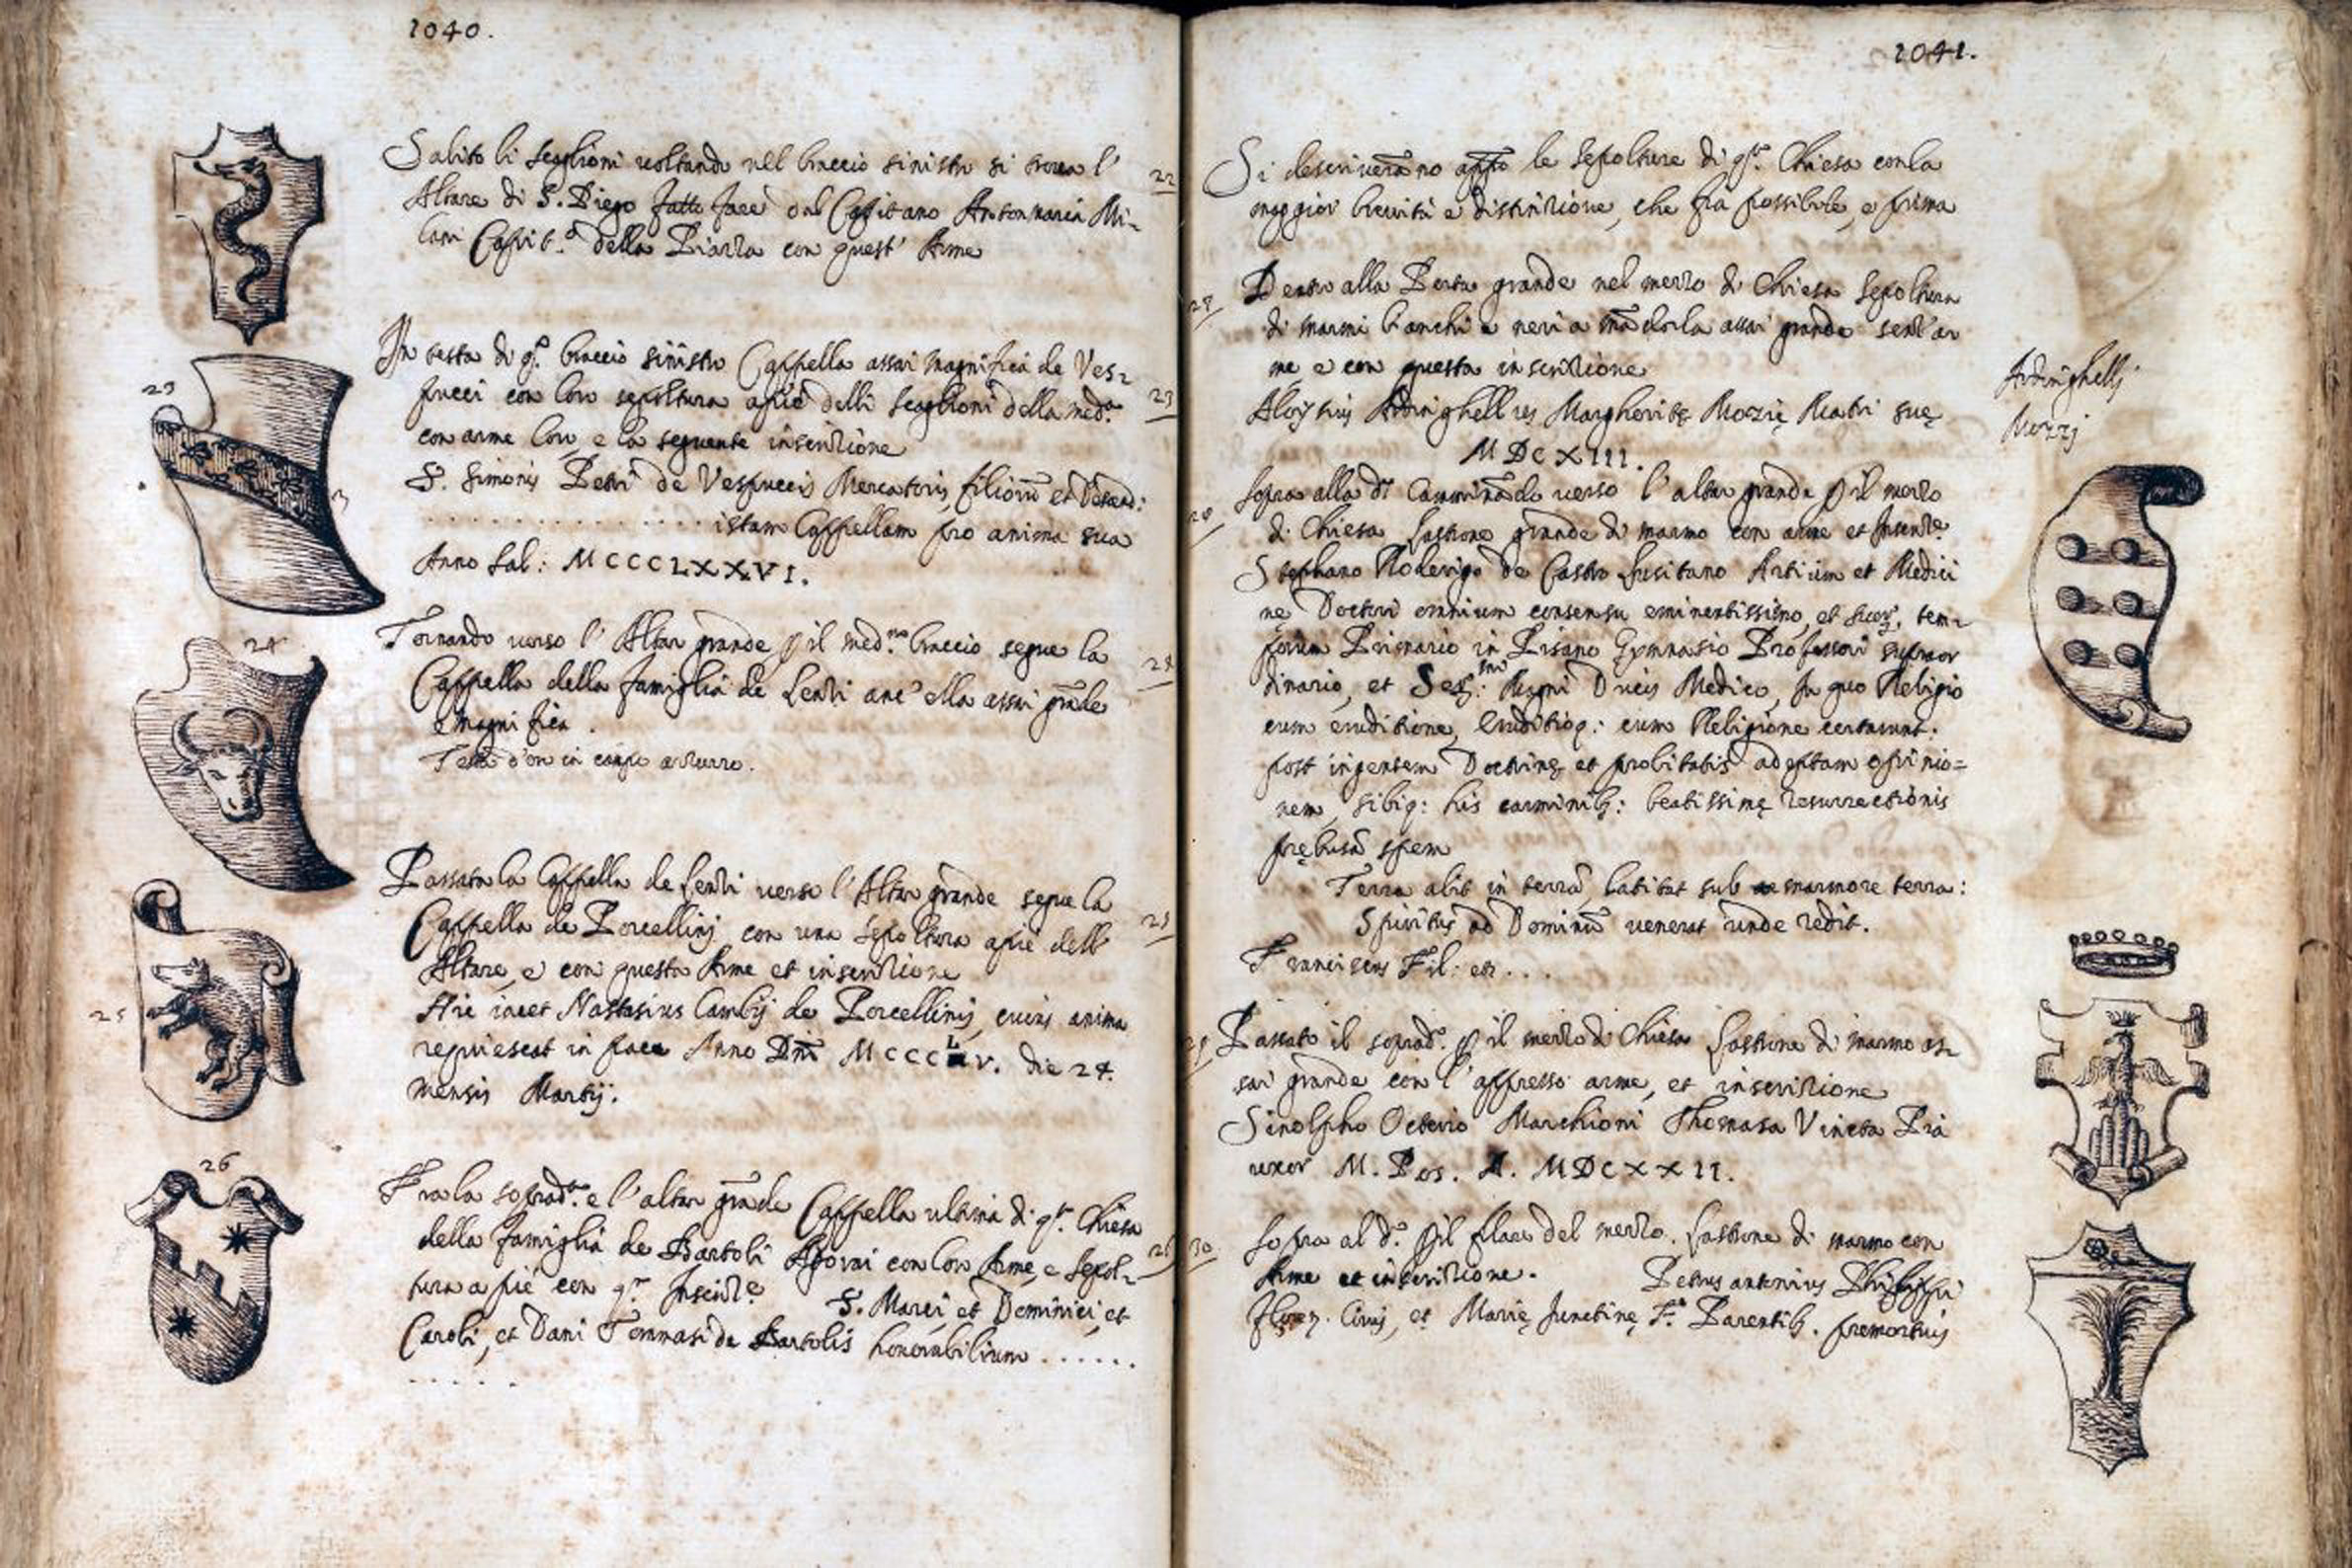 1040.
Salito li scaglioni voltando nel braccio sinistro si trova l'
Altare di S. Diego fatto fare dal Capitano Antonmaria Mi-
lani Capit.º della Piazza con quest' Arme
22
In testa di qº. braccio sinistro Cappella assai magnifica de Ves-
pucci con loro sepoltura apiè delli scaglioni della medª.
con arme loro, e la seguente inscrizione
S. Simonis Petri de Vespuccis Mercatoris, filiorū et
. . . . . . . . . . . . . . . istam Cappellam pro anima sua
Anno Sal: MCCCLXXVI.
23
23
Tornando verso l' Altar grande p il med.mo braccio segue la
Cappella della famiglia de Lenzi anc' ella assai grāde
e magnifica.
Testa d'oro in campo azzurro.
24
24
Passata la Cappella de Lenzi verso l' Altar grande segue la
Cappella de Porcellinj con una sepoltura apiè dell'
Altare, e con questa Arme et inscrizione
Hic iacet Nastasius Cambij de Porcellinis, cuius anima
requiescat in pace Anno Dñi MCCCLV. die 24.
mensis Martij.
25
25
26
Fra la sopradª. e l'altar grāde Cappella ultima di qª. Chiesa
della famiglia de Bartoli con loro Arme, e sepol-
tura a piè con qª. Inscrizᵉ S. Marci, et Dominici, et
Caroli, et Dani Tommasi de Bartolis honorabilium . . . . . .
. . . . .
26
1041.
Si descriverāno appº le sepolture di qª. Chiesa con la
maggior brevità e distinzione, che sia possibile, e prima
27
Dentro alla Porta grande nel mezzo di Chiesa sepoltura
di marmi bianchi e neri a mādorla assai grande senz' ar
me e con questa inscrizione
Aloysius Ardinghellius Margheritę Mozzię Matri suę
MDCXIII.
Ardinghellj
Mozzj
28
Sopra alla dª. Camminādo verso l' altar grande p il mezzo
di Chiesa lastrone grande di marmo con arme et Inscrizᵉ.
Stephano Roderigo de Castro Lusitano Artium et Medici
nę Doctori omnium consensu eminentissimo, et suor̄. tem-
porum Primario in Pisano Gymnasio Professori supraor
dinario, et Ser:mi Magni Ducis Medico, In quo Religio
cum eruditione, Eruditioq: cum Religione certarunt.
post ingentem Doctrinę et probitatis adeptam opinio=
nem, sibiq: his carminib: beatissimę resurrectionis
prębuit spem
Terra abit in terrā, latitat sub marmore terra:
Spiritus ad Dominū venerat unde redit.
Franciscus Fil: etc. . . .
29
Passato il sopradº. p il mezzo di Chiesa lastrone di marmo as-
sai grande con l' appresso arme, et inscrizione
Sinolpho Octerio Marchioni Thomasa Vincta Pia
uxor M. Pos. A. MDCXXII.
30
Sopra al dº. p il filare del mezzo. Lastrone di marmo con
Arme et inscrizione. Petrus antonius Philippi
Floren. Civis, et Marię Junctinę Fs. Parentib. premortuis